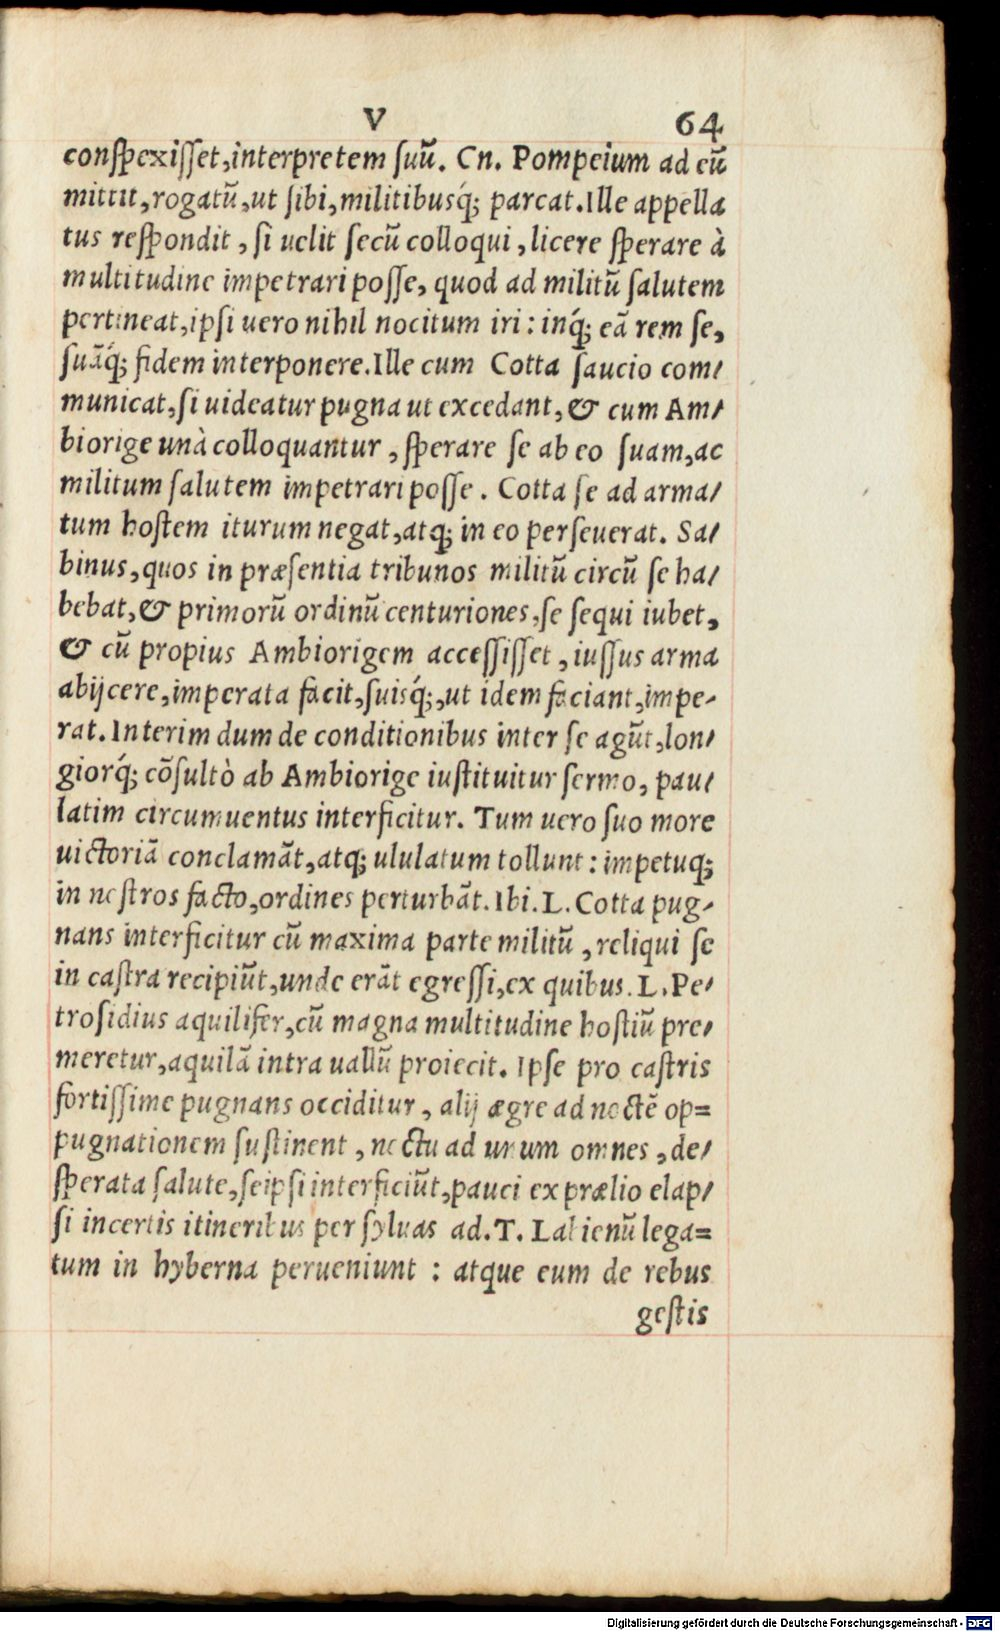 V 64
conspexisset, interpretem suũ. Cn. Pompeium ad eũ
mittit, rogatũ, ut sibi, militibusq́; parcat. Ille appella
tus respondit, si uelit secũ colloqui, licere sperare à
multitudine impetrari posse, quod ad militũ salutem
pertineat, ipsi uero nihil nocitum iri: inq́; eã rem se,
suãq́; fidem interponere. Ille cum Cotta saucio com-
municat, si uideatur pugna ut excedant, & cum Am-
biorige unà colloquantur, sperare se ab eo suam, ac
militum salutem impetrari posse. Cotta se ad arma-
tum hostem iturum negat, atq; in eo perseuerat. Sa-
binus, quos in præsentia tribunos militũ circũ se ha-
bebat, & primorũ ordinũ centuriones, se sequi iubet,
& cũ propius Ambiorigem accessisset, iussus arma
abijcere, imperata facit, suisq́;, ut idem faciant, impe-
rat. Interim dum de conditionibus inter se agũt, lon-
giorq́; cõsultò ab Ambiorige iustituitur sermo, pau-
latim circumuentus interficitur. Tum uero suo more
uictoriã conclamãt, atq; ululatum tollunt: impetuq;
in nostros facto, ordines perturbãt. Ibi. L. Cotta pug-
nans interficitur cũ maxima parte militũ, reliqui se
in castra recipiũt, unde erãt egressi, ex quibus. L. Pe-
trosidius aquilifer, cũ magna multitudine hostiũ pre-
meretur, aquilã intra uallũ proiecit. Ipse pro castris
fortissime pugnans occiditur, alij ægre ad noctẽ op=
pugnationem sustinent, noctu ad unum omnes, de-
sperata salute, seipsi interficiũt, pauci ex prælio elap-
si incertis itineribus per syluas ad. T. Labienũ lega=
tum in hyberna perueniunt: atque eum de rebus
gestis
Digitalisierung gefördert durch die Deutsche Forschungsgemeinschaft - DFG